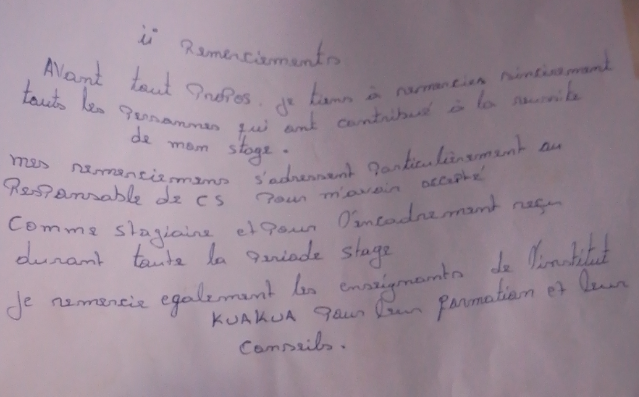 ii Remerciements
Avant tout propos, je tiens à remercier sincirement
touts les personnes qui ont contribué à la reussite
de mon stage.
mes remerciemens s'adressent particulièrement au
Responsable de CS pour m'avoir accepté
Comme stagiaire et pour l'encadrement reçu
durant toute la periode stage
Je remercie egalement les enseignants de l'institut
KUAKUA pour leur formation et leur
Conseils.